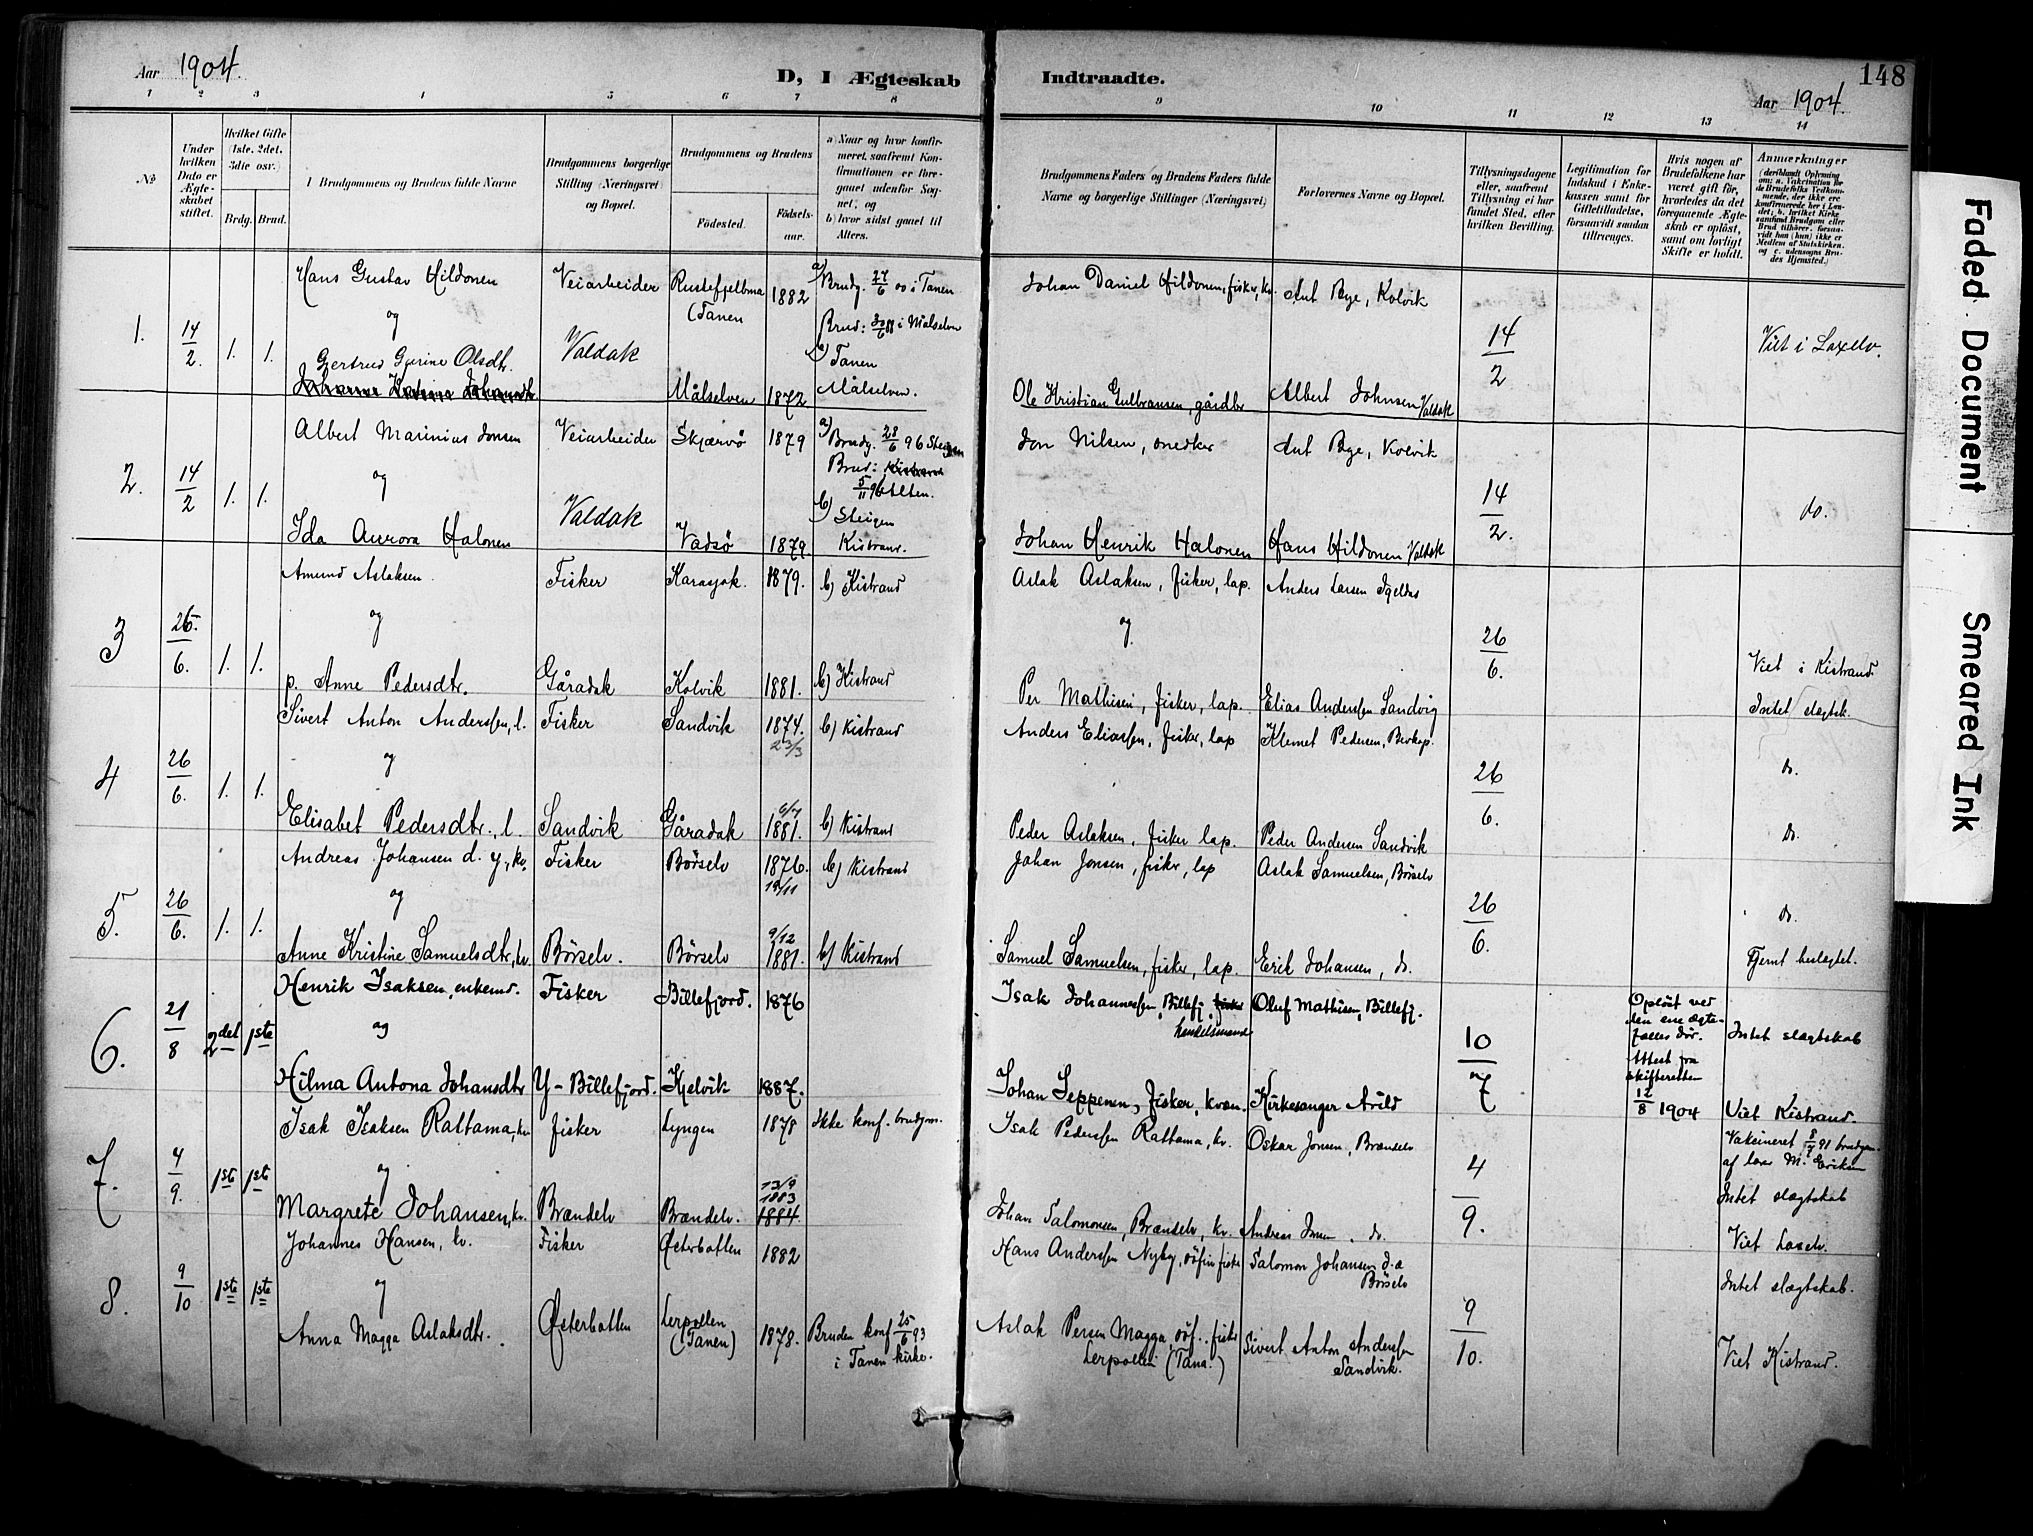 Aar 1904.
D, I Ægteskab Indtraadte.
148
Aar 1904.
1 2 3 4 5 6 7 8 9 10 11 12 13 14
No
Under hvilken Dato er Ægteskabet stiftet.
Hvilket Gifte (1ste, 2det, 3die osv.)
Brdg. Brud.
Brudgommens og Brudens fulde Navne
Brudgommens borgerlige Stilling (Næringsvei) og Bopæl.
Brudgommens og Brudens
Fødested.
Fødselsaar.
a) Naar og hvor konfirmeret, saafremt Konfirmationen er foregaaet udenfor Sognet; og
b) hvor sidst gaaet til Alters.
Brudgommens Faders og Brudens Faders fulde Navne og borgerlige Stillinger (Næringsvei)
Forlovernes Navne og Bopæl.
Tillysningsdagene eller, saafremt Tillysning ei har fundet Sted, efter hvilken Bevilling.
Legitimation for Indskud i Enkekassen samt for Giftetilladelse, forsaavidt saadan tiltrænges.
Hvis nogen af Brudefolkene har været gift før, hvorledes da det foregaaende Ægteskab er opløst, samt om lovligt Skifte er holdt.
Anmærkninger
1. 14/2. 1. 1.
Hans Gustav Hildonen Veiarbeider Rustefjelbma (Tanen 1882 a) Brudg. 27/6 00 i Tanen Johan Daniel Hildonen, fisker, kv. Ant Bye, Kolvik
og Valdak Brud: 30/6 88 i Målselven 14/2 Viet i Laxelv.
Gertrud Gurine Olsdtr. b) Tanen
Målselven 1872 Målselven. Ole Kristian Gulbransen, gårdbr Albert Johnsen Valdak
2. 14/2 1. 1.
Albert Marinius Jonsen Veiarbeider Skjærvø 1879 a) Brudg. 28/6 96 Steigen Jon Nilsen, snedker Ant Bye, Kolvik
og Valdak Brud: Kistrand 5/11 96 Alten. 14/2. do.
b) Steigen
Ida Aurora Halonen Vadsø 1879 Kistrand. Johan Henrik Halonen Hans Hildonen Valdak
3 26/6. 1. 1.
Amund Aslaksen. Fisker Karasjok. 1879. b) Kistrand Aslak Aslaksen, fisker, lap. Anders Larsen
og og 26/6.
p. Anne Pedersdtr. Gåradak Kolvik 1881. b) Kistrand Per Mathisen, fisker, lap. Elias Anderssen Sandvig Viet i Kistrand
Intet slegtsk.
4 26/6. 1. 1.
Sivert Anton Anderssen, l. Fisker Sandvik 1874. 23/3 b) Kistrand Anders Eliassen, fisker, lap Klemet Pedersen,
og 26/6. do.
Elisabet Pedersdtr., l. Sandvik Gåradak 6/7 1881. b) Kistrand Peder Aslaksen, fisker lap. Peder Andersen Sandvik do.
5. 26/6. 1. 1.
Andreas Johansen d. y., kv. Fisker Børselv 1876. 19/11 b) Kistrand Johan Jonsen, fisker, lap Aslak Samuelsen, Børselv
og 26/6. do.
Anne Kristine Samuelsdtr, kv. Børselv. Børselv 9/12 1881. b) Kistrand Samuel Samuelsen, fisker, lap. Erik Johansen, do. Fjernt beslegtet.
6. 21/8 2det 1ste
Henrik Isaksen, enkemd. Fisker Billefjord. 1876 Isak Johannessen, Billefj, handelsmand Oluf Mathisen, Billefj.
og 10/7 Opløst ved den ene ægtefælles død. Attest fra skifteretten 12/8 1904 Intet slægtskab
Hilma Antona Johansdtr Y-Billefjord. Kjelvik 1887. Johan Seppenen, fisker, kvæn. Kirkesanger Avild Viet Kistrand.
7. 4/9. 1ste 1ste
Isak Isaksen Rattama, kv. fisker Lyngen 1878 Ikke konf. brudgm. Isak Pederssen Rattama, kv. Oskar Jonsen, Brændelv Vaksineret 8/7 91 brudgm. af lærer M. Eriksen
og 4/9. Intet slægtskab
Margrete Johansen, kv. Brændelv Brændelv. 13/9 1883 1884. Johan Salomonsen, Brændelv, kv. Andreas Jonsen, do. Viet Laxelv.
8. 9/10 1ste 1ste
Johannes Hansen, kv. Fisker Østerbotten 1882 Hans Anderssen Nyby, søfin fisker Salomon Johansen d.æ Børselv
og 9/10. Intet slægtskab.
Anna Magga Aslaksdtr. Østerbotten Lerpollen (Tanen) 1878. Bruden konf 25/6 93 i Tanen kirke. Aslak Persen Magga, søf., fisker Lerpollen (Tana.) Sivert Anton Anderssen Sandvik. Viet Kistrand.
Faded Document
Smeared Ink